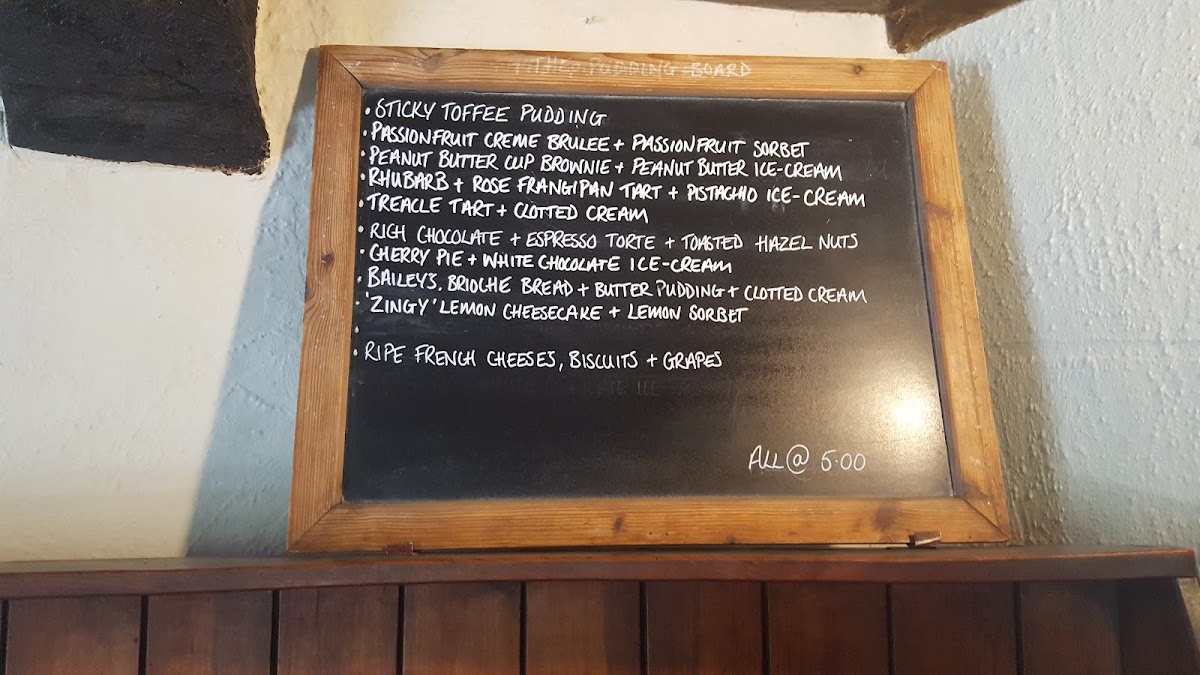 THE PUDDING BOARD
• STICKY TOFFEE PUDDING
• PASSIONFRUIT CREME BRULEE + PASSIONFRUIT SORBET
• PEANUT BUTTER CUP BROWNIE + PEANUT BUTTER ICE-CREAM
• RHUBARB + ROSE FRANGIPAN TART + PISTACHIO ICE-CREAM
• TREACLE TART + CLOTTED CREAM
• RICH CHOCOLATE + ESPRESSO TORTE + TOASTED HAZEL NUTS
• CHERRY PIE + WHITE CHOCOLATE ICE-CREAM
• BAILEYS. BRIOCHE BREAD + BUTTER PUDDING + CLOTTED CREAM
• 'ZINGY' LEMON CHEESECAKE + LEMON SORBET
•
• RIPE FRENCH CHEESES, BISCUITS + GRAPES
ALL @ 5.00